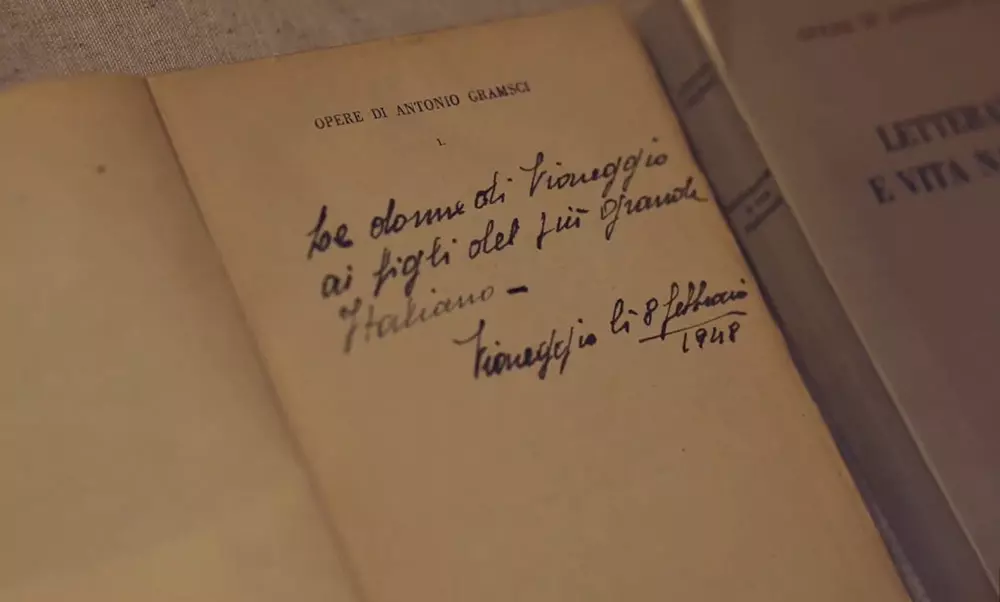 OPERE DI ANTONIO GRAMSCI
1.
Le donne di Viareggio
ai figli del più grande
Italiano –
Viareggio li 8 febbraio
1948
LETTERA
E VITA N